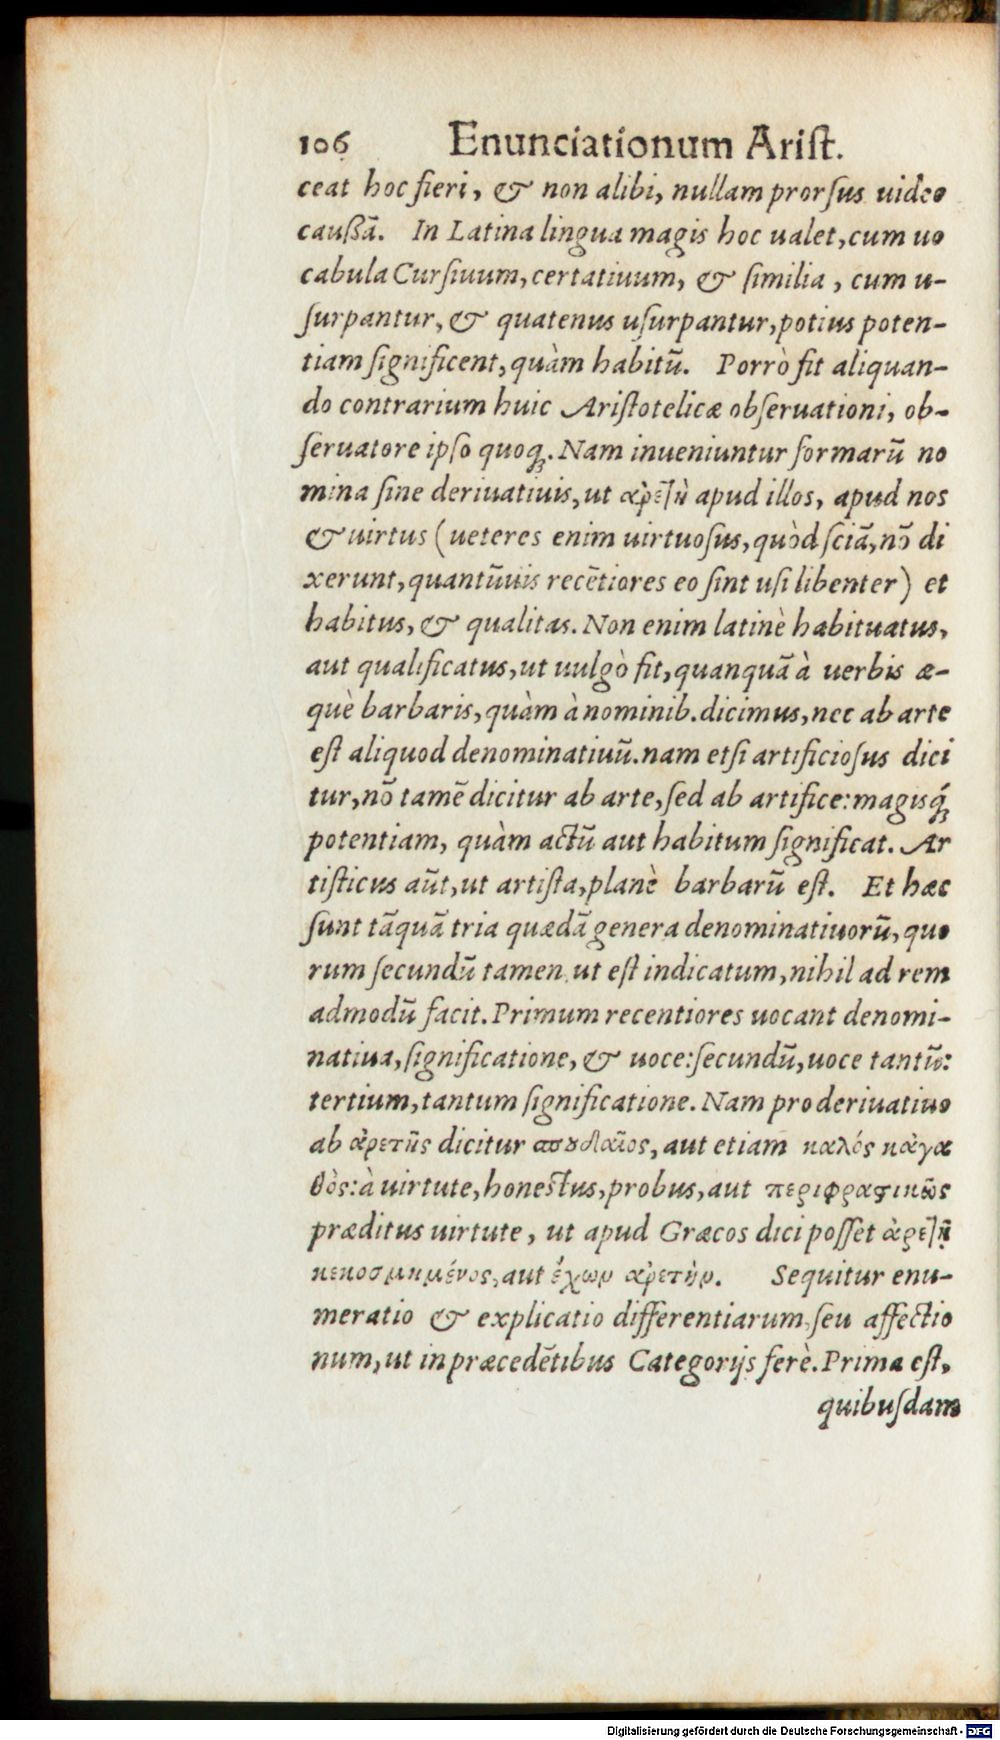 106 Enunciationum Ariſt.
ceat hoc fieri, & non alibi, nullam prorſus uideo
cauſſã. In Latina lingua magis hoc ualet, cum uo
cabula Curſiuum, certatiuum, & ſimilia, cum u-
ſurpantur, & quatenus uſurpantur, potius poten-
tiam ſignificent, quàm habitũ. Porrò fit aliquan-
do contrarium huic Ariſtotelicæ obſeruationi, ob-
ſeruatore ipſo quoq;. Nam inueniuntur formarũ no
mina ſine deriuatiuis, ut ἀρετὴ apud illos, apud nos
& uirtus (ueteres enim uirtuoſus, quòd ſciã, nõ di
xerunt, quantũuis recẽtiores eo ſint uſi libenter) et
habitus, & qualitas. Non enim latinè habituatus,
aut qualificatus, ut uulgò fit, quanquã à uerbis æ-
què barbaris, quàm à nominib. dicimus, nec ab arte
eſt aliquod denominatiuũ. nam etſi artificioſus dici
tur, nõ tamẽ dicitur ab arte, ſed ab artifice: magisq́;
potentiam, quàm actũ aut habitum ſignificat. Ar
tiſticus aũt, ut artiſta, planè barbarũ eſt. Et hæc
ſunt tãquã tria quædã genera denominatiuorũ, quo
rum ſecundũ tamen ut eſt indicatum, nihil ad rem
admodũ facit. Primum recentiores uocant denomi-
natiua, ſignificatione, & uoce: ſecundũ, uoce tantũ:
tertium, tantum ſignificatione. Nam pro deriuatiuo
ab ἀρετῆς dicitur σπουδαῖος, aut etiam καλός κἀγα
θὸς: à uirtute, honeſtus, probus, aut περιφραστικῶς
præditus uirtute, ut apud Græcos dici poſſet ἀρετῇ
κεκοσμημένος, aut ἔχων ἀρετὴν. Sequitur enu-
meratio & explicatio differentiarum, ſeu affectio
num, ut in præcedẽtibus Categorijs ferè. Prima eſt,
quibuſdam
Digitalisierung gefördert durch die Deutsche Forschungsgemeinschaft - DFG